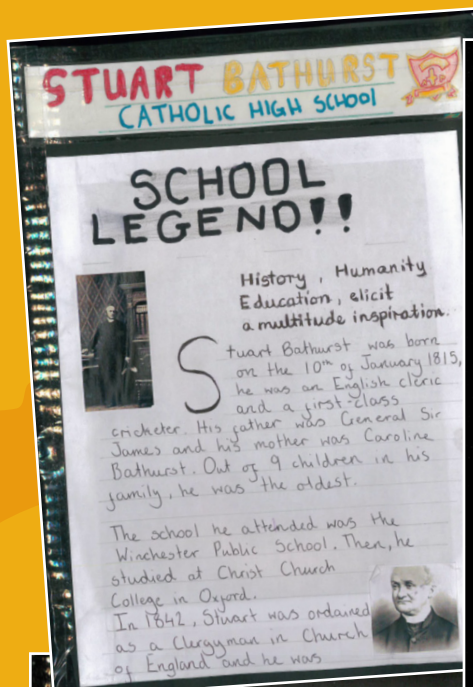 STUART BATHURST
CATHOLIC HIGH SCHOOL
SCHOOL
LEGEND!!
History, Humanity
Education, elicit
a multitude inspiration.
Stuart Bathurst was born
on the 10th of January 1815,
he was an English cleric
and a first-class
cricketer. His father was General Sir
James and his mother was Caroline
Bathurst. Out of 9 children in his
family, he was the oldest.
The school he attended was the
Winchester Public School. Then, he
studied at Christ Church
College in Oxford.
In 1842, Stuart was ordained
as a Clergyman in Church
of England and he was